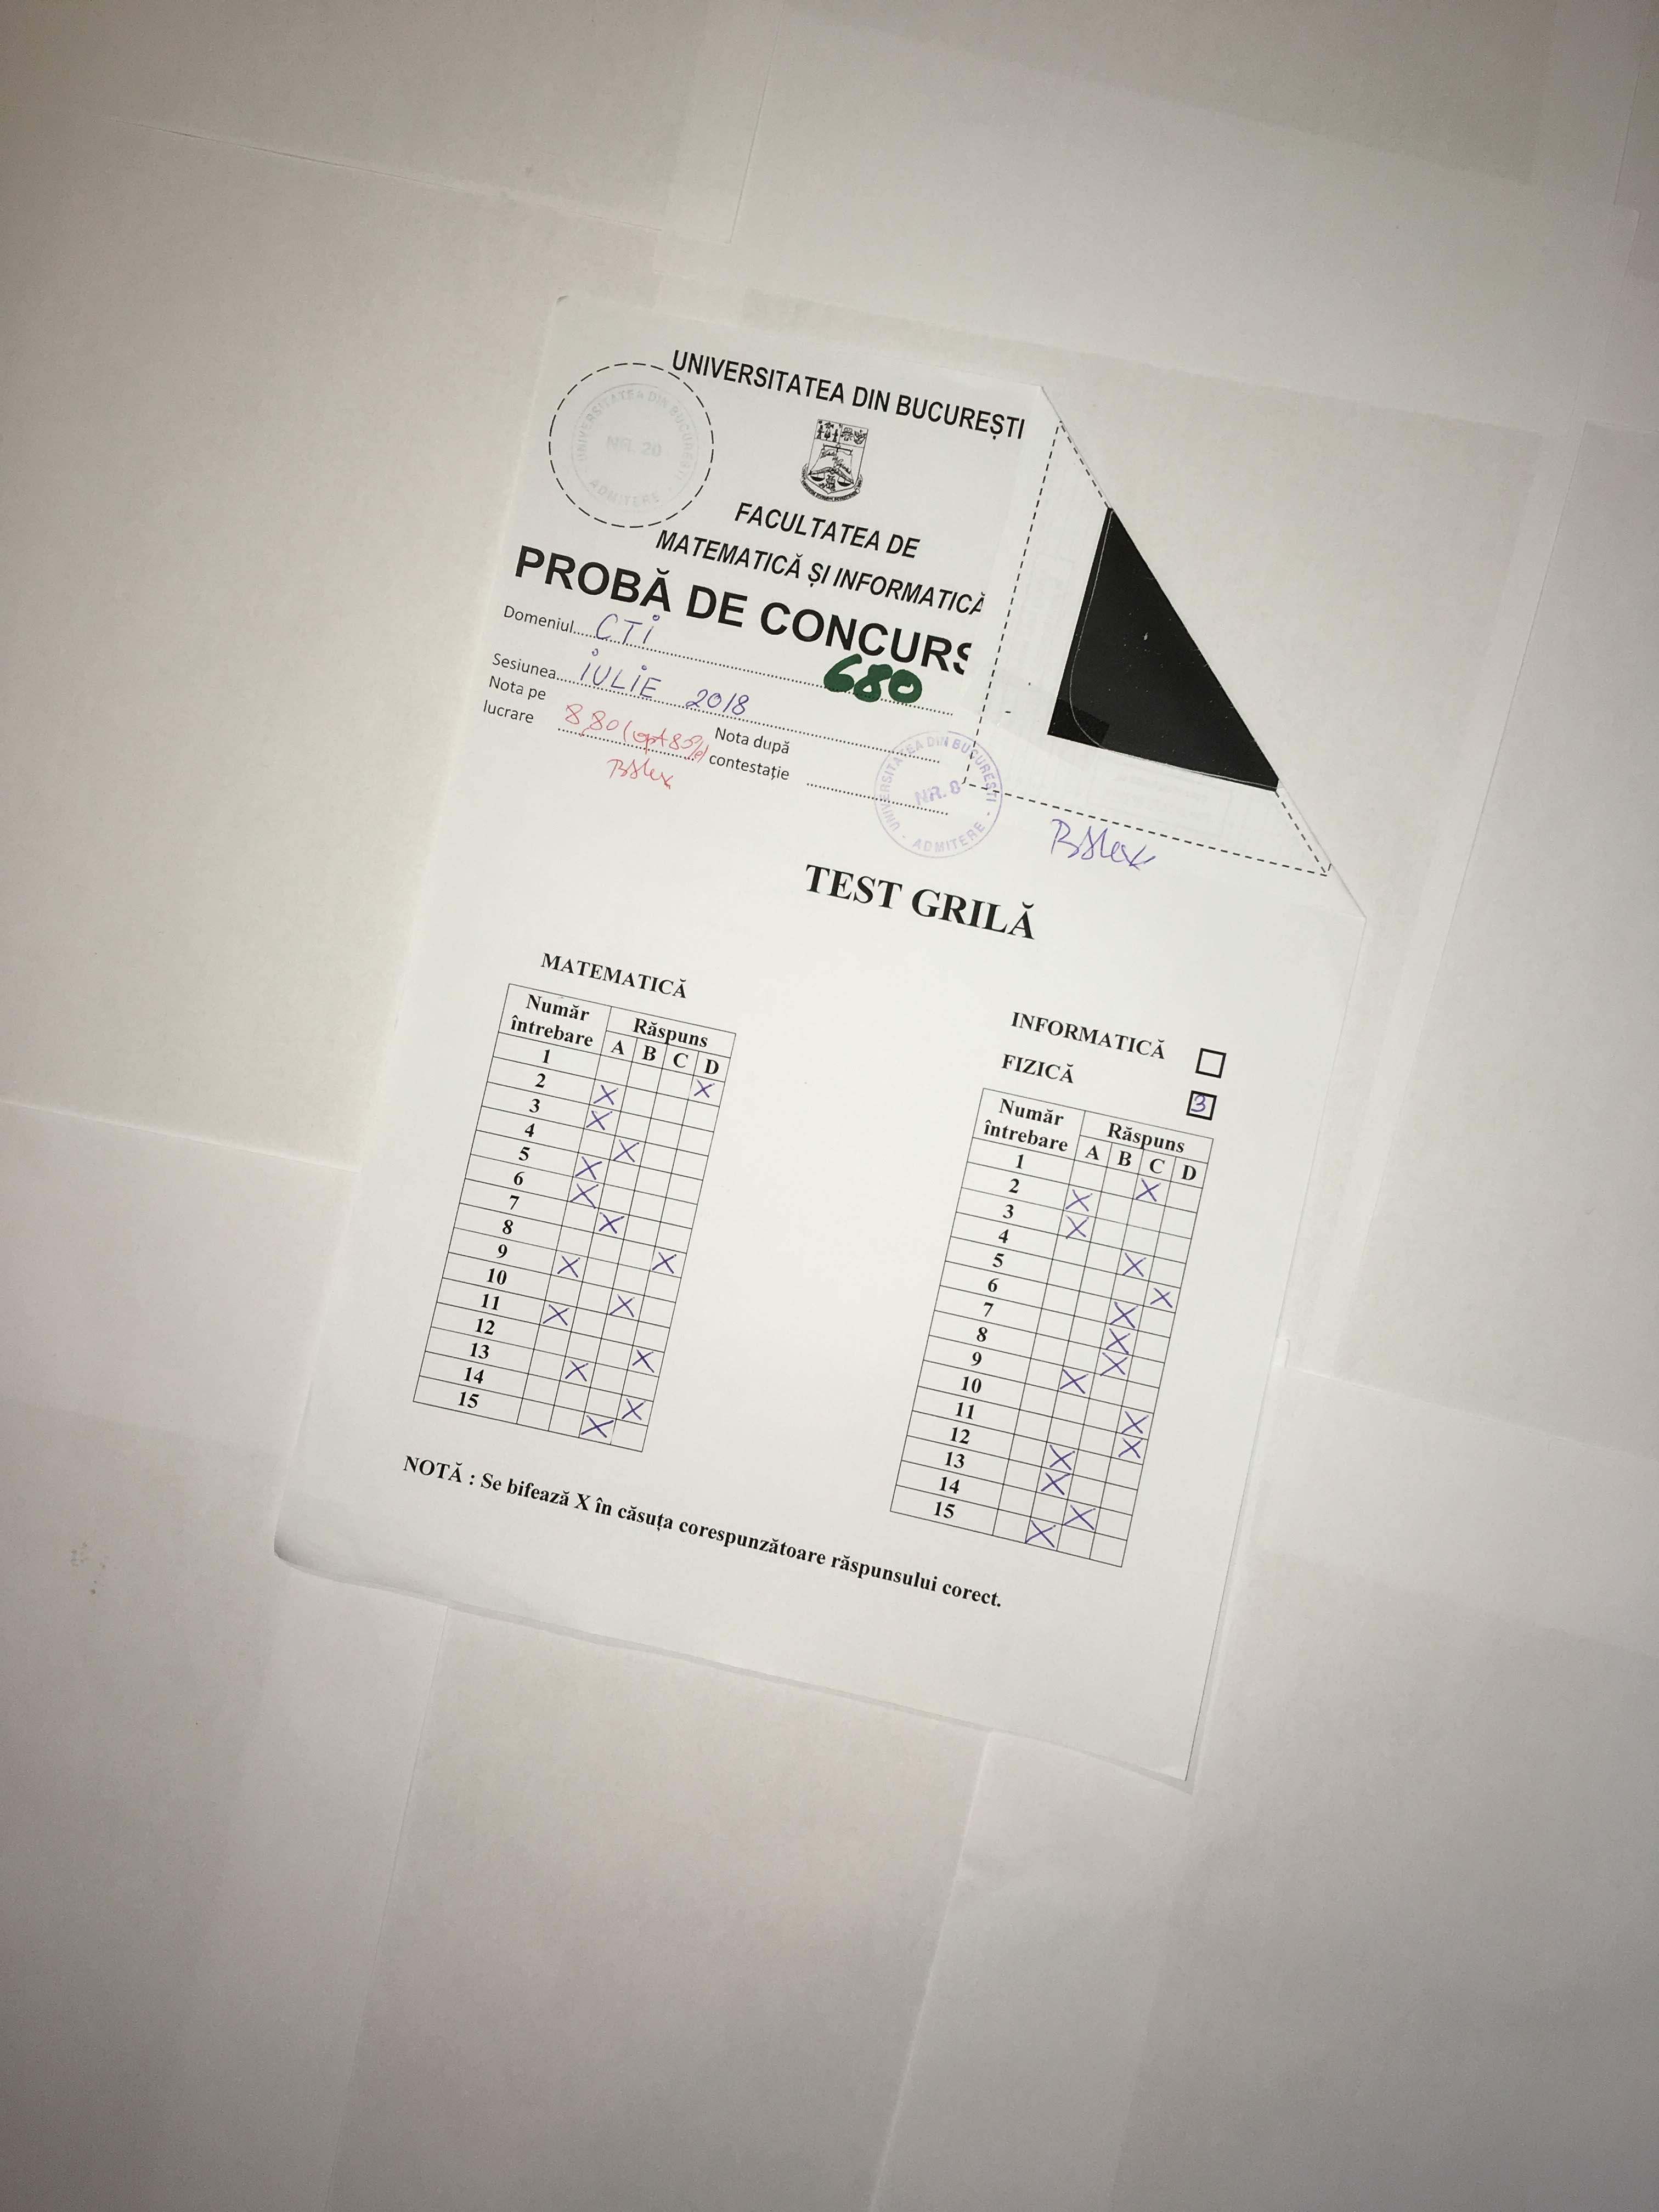 UNIVERSITATEA DIN BUCUREȘTI
UNIVERSITATEA DIN BUCUREȘTI
NR. 20
ADMITERE
FACULTATEA DE
MATEMATICĂ ȘI INFORMATICĂ
PROBĂ DE CONCURS
Domeniul......CTI
680
Sesiunea....IULIE 2018
Nota pe lucrare 8,80
Nota după contestație
UNIVERSITATEA DIN BUCUREȘTI
NR. 8
ADMITERE
TEST GRILĂ
MATEMATICĂ
Număr întrebare Răspuns
A B C D
1 X
2 X
3 X
4 X
5 X
6 X
7 X
8 X
9 X
10 X
11 X
12 X
13 X
14 X
15 X
INFORMATICĂ
FIZICĂ 3
Număr întrebare Răspuns
A B C D
1 X
2 X
3 X
4 X
5 X
6 X
7 X
8 X
9 X
10 X
11 X
12 X
13 X
14 X
15 X
NOTĂ : Se bifează X în căsuța corespunzătoare răspunsului corect.